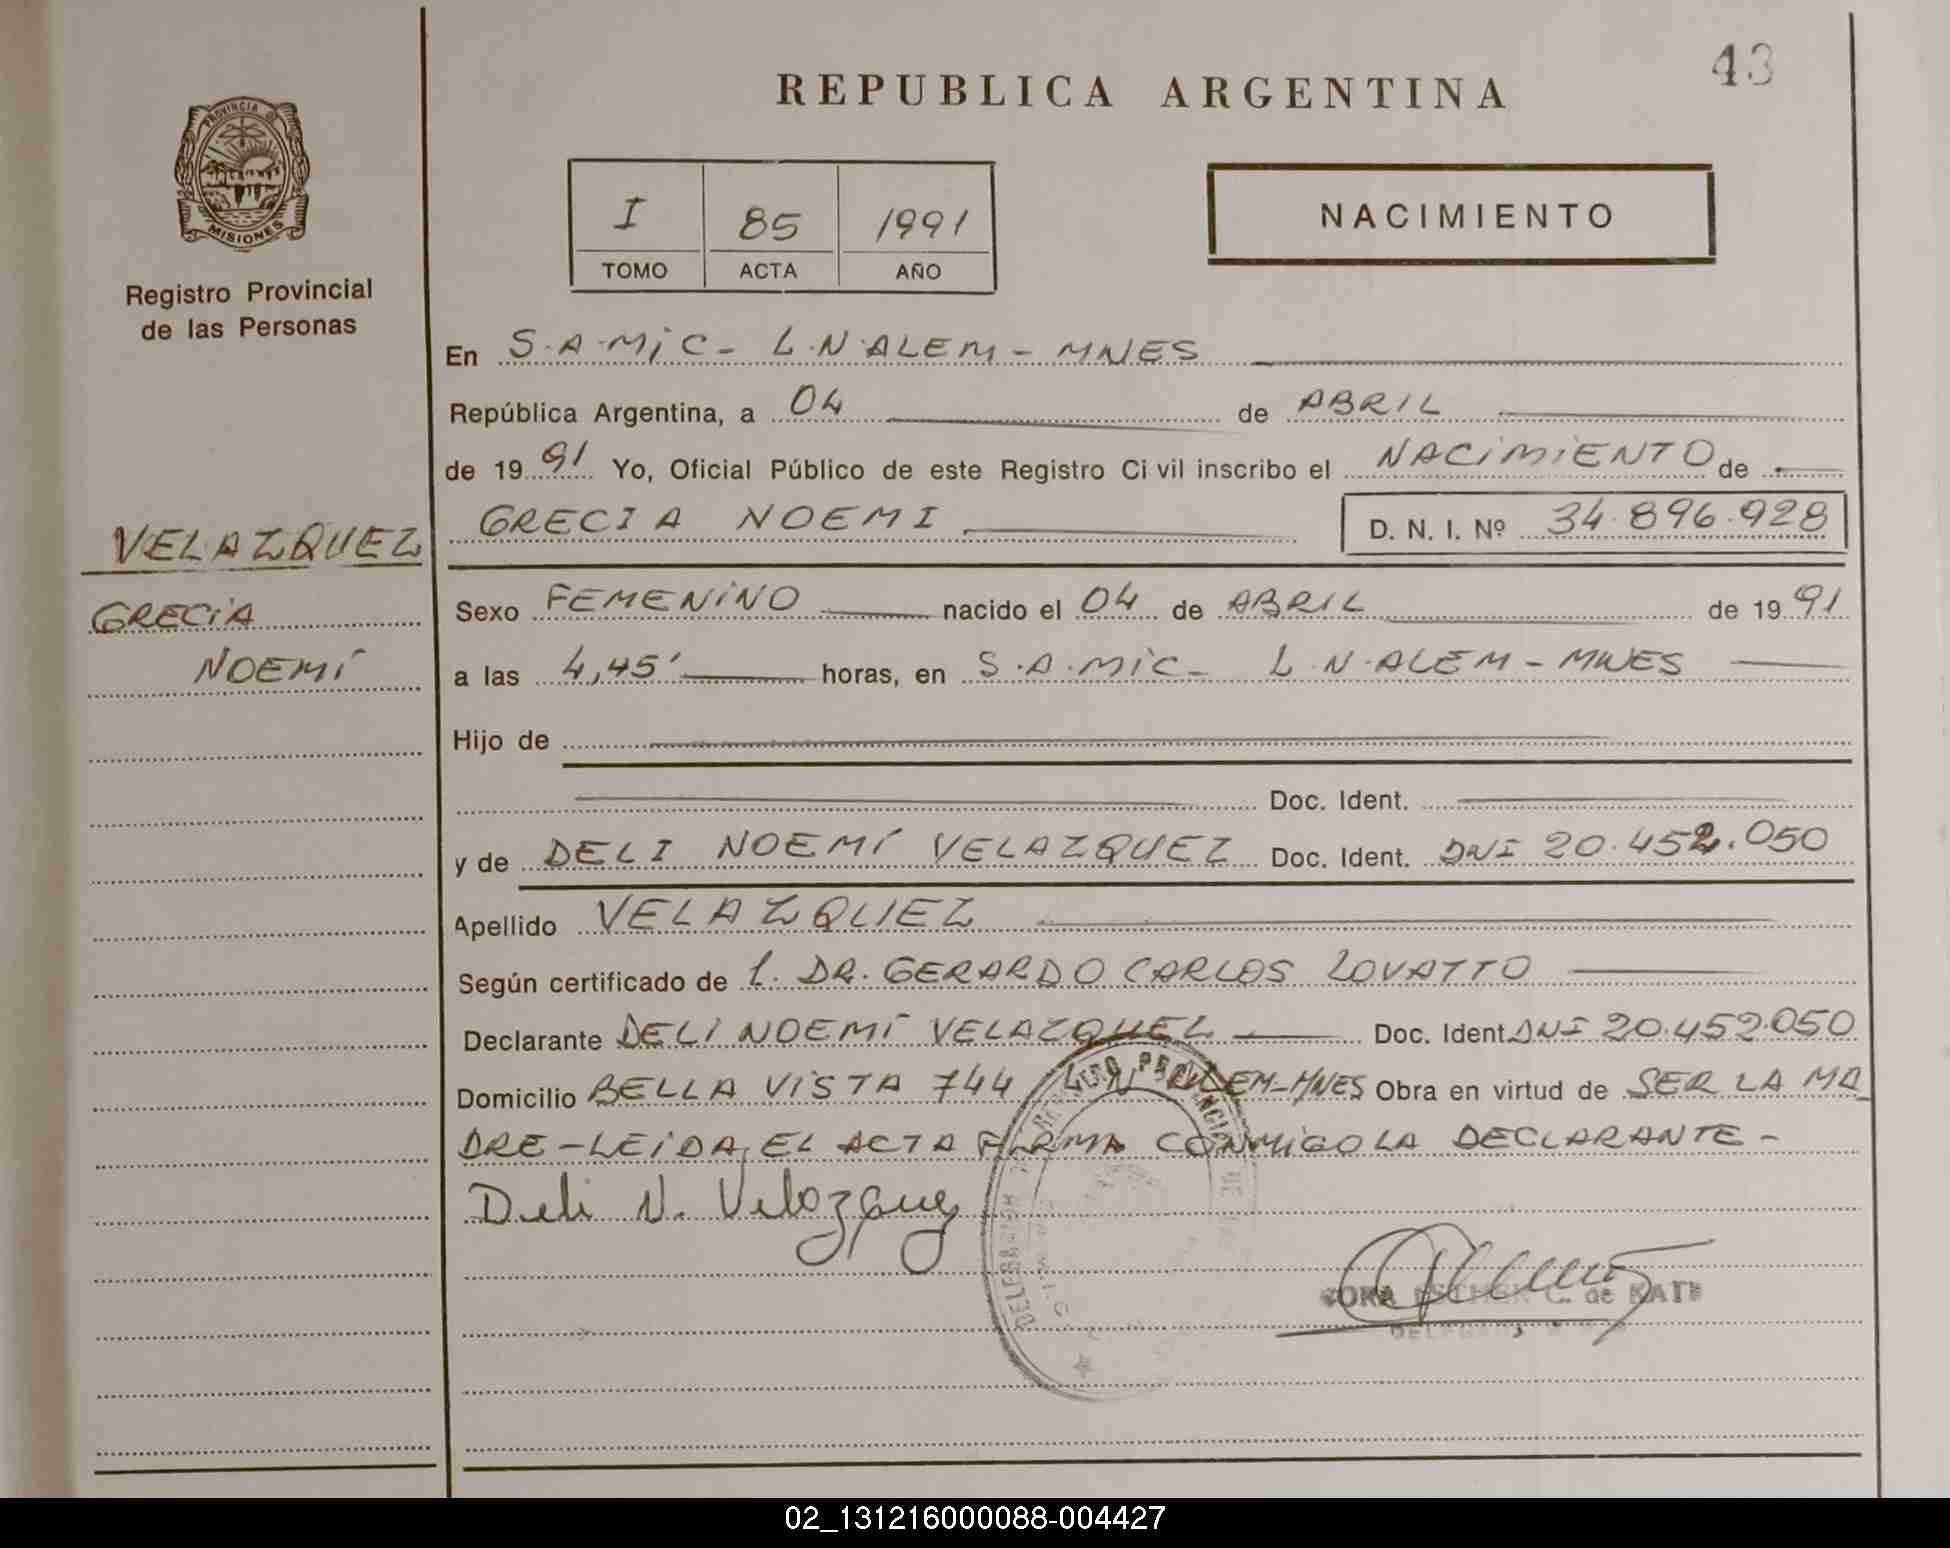 43
REPUBLICA ARGENTINA
PROVINCIA DE
MISIONES
Registro Provincial
de las Personas
I 85 1991
TOMO ACTA AÑO
NACIMIENTO
En S.A.MiC- L.N.ALEM- MNES
República Argentina, a 04 de ABRIL
de 1991 Yo, Oficial Público de este Registro Civil inscribo el NACIMIENTO de
VELAZQUEZ
GRECIA NOEMI D. N. I. Nº 34.896.928
GRECIA
NOEMÍ
Sexo FEMENINO nacido el 04 de ABRIL de 1991
a las 4,45' horas, en S.A.MIC- L.N.ALEM-MNES
Hijo de
Doc. Ident.
y de DELI NOEMÍ VELAZQUEZ Doc. Ident. DNI 20.452.050
Apellido VELAZQUEZ
Según certificado de l. DR. GERARDO CARLOS LOVATTO
Declarante DELI NOEMÍ VELAZQUEZ Doc. Ident. DNI 20.452.050
Domicilio BELLA VISTA 744 L.N.ALEM-MNES Obra en virtud de SER LA MA
DRE-LEIDA EL ACTA FIRMA CONMIGO LA DECLARANTE-
Deli N. Velazquez
ESTHER C. de
02_131216000088-004427